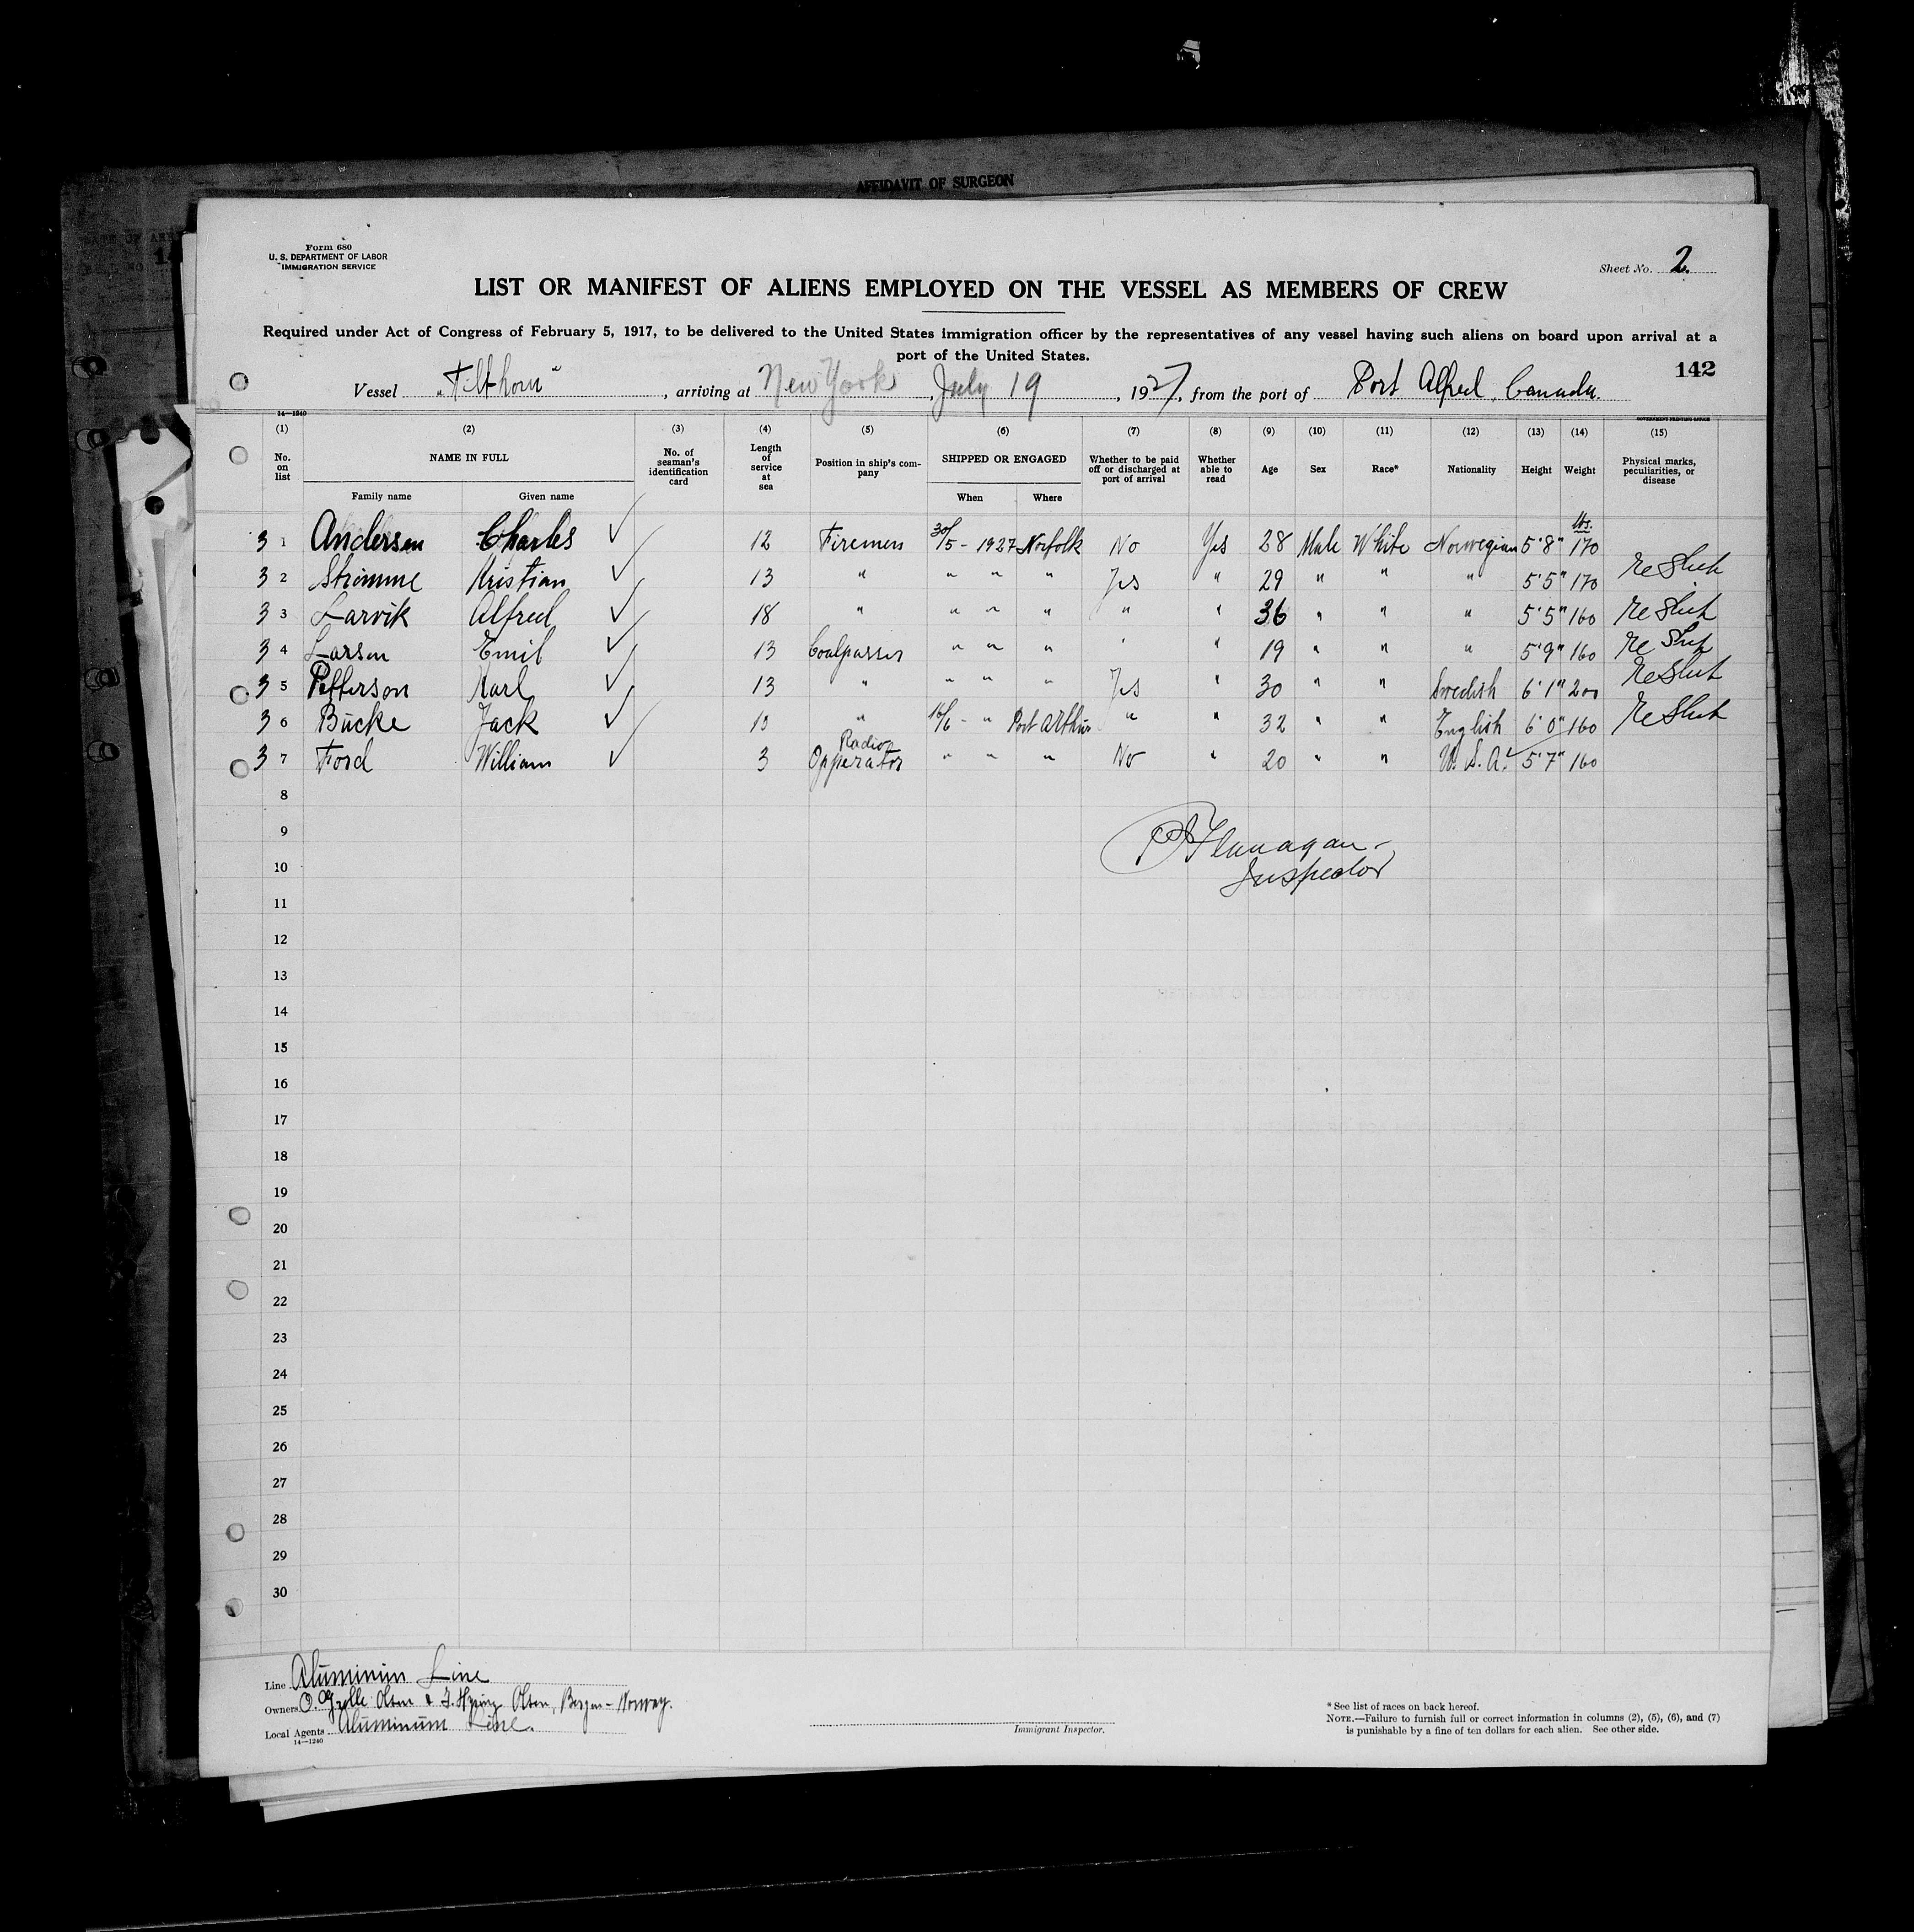 AFFIDAVIT OF SURGEON
Form 680
U. S. DEPARTMENT OF LABOR
IMMIGRATION SERVICE
Sheet No. 2.
LIST OR MANIFEST OF ALIENS EMPLOYED ON THE VESSEL AS MEMBERS OF CREW
Required under Act of Congress of February 5, 1917, to be delivered to the United States immigration officer by the representatives of any vessel having such aliens on board upon arrival at a
port of the United States.
142
Vessel "Tilthorn", arriving at New York, July 19, 1927, from the port of Port Alfred, Canada.
14—1240
GOVERNMENT PRINTING OFFICE
(1) (2) (3) (4) (5) (6) (7) (8) (9) (10) (11) (12) (13) (14) (15)
No. on list NAME IN FULL No. of seaman's identification card Length of service at sea Position in ship's company SHIPPED OR ENGAGED Whether to be paid off or discharged at port of arrival Whether able to read Age Sex Race* Nationality Height Weight Physical marks, peculiarities, or disease
Family name Given name When Where
lbs.
3 1 Andersen Charles ✓ 12 Firemen 30/5 - 1927 Norfolk No Yes 28 Male White Norwegian 5'8" 170
3 2 Strimme Kristian ✓ 13 " " " " Yes " 29 " " " 5'5" 170 Re Ship
3 3 Larvik Alfred ✓ 18 " " " " " " 36 " " " 5'5" 160 Re Ship
3 4 Larsen Emil ✓ 13 Coalpasser " " " " " 19 " " " 5'9" 160 Re Ship
3 5 Petterson Karl ✓ 13 " " " " Yes " 30 " " Swedish 6'1" 200 Re Ship
3 6 Bucke Jack ✓ 10 " 16/6 - " Port Arthur " " 32 " " English 6'0" 160 Re Ship
3 7 Ford William ✓ 3 Radio Opperator " " " No " 20 " " U.S.A. 5'7" 160
8
9
Flanagan -
10
Inspector
11
12
13
14
15
16
17
18
19
20
21
22
23
24
25
26
27
28
29
30
Line Aluminum Line
Owners O. Grolle Olsen & Olsen, Bergen - Norway.
Local Agents Aluminum Line.
14—1240
Immigrant Inspector.
* See list of races on back hereof.
NOTE.—Failure to furnish full or correct information in columns (2), (5), (6), and (7)
is punishable by a fine of ten dollars for each alien. See other side.